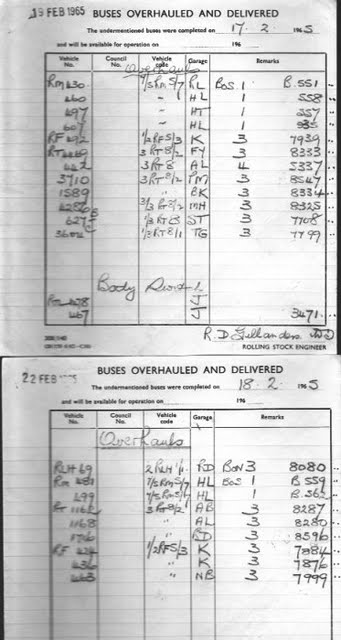 19 FEB 1965 BUSES OVERHAULED AND DELIVERED
The undermentioned buses were completed on 17. 2. 1965
and will be available for operation on 196
Vehicle No. Council No. Vehicle code Garage Remarks
Overhauls
RM 430 7/5 RM 5/7 RL BOS. 1 B. 551
460 " HL 1 558
497 " HT 1 557
607 " HL 1
RF 492 1/2 RF 5/3 K 3 7939
RT 4469 3 RT 8/2 FY 3 8333
442 3 RT 8 AL 4 5337
3710 3 RT 8/2 PM 3 8547
1589 " BK 3 8334
4286 3/3 RT 3/2 MH 3 8325
627 1/3 RT 3 ST 3 7708
36 1/3 RT 8/1 TG 3 7799
Body
RM 478 J
467 J 3471
R. D. Gillanders
ROLLING STOCK ENGINEER
22 FEB BUSES OVERHAULED AND DELIVERED
The undermentioned buses were completed on 18. 2. 1965
and will be available for operation on 196
Vehicle No. Council No. Vehicle code Garage Remarks
Overhauls
RLH 69 2 RLH 1/1 RD BON 3 8080
RM 481 7/5 RM 5/7 HL BOS 1 B. 559
499 7/5 RM 5/7 HL 1 B. 562
RT 1162 3 RT 8/2 AB 3 8287
1168 " AL 3 8280
1706 " BD 3 8596
RF 424 1/2 RF 5/3 K 3 7884
436 " K 3 7876
463 " NB 3 7999